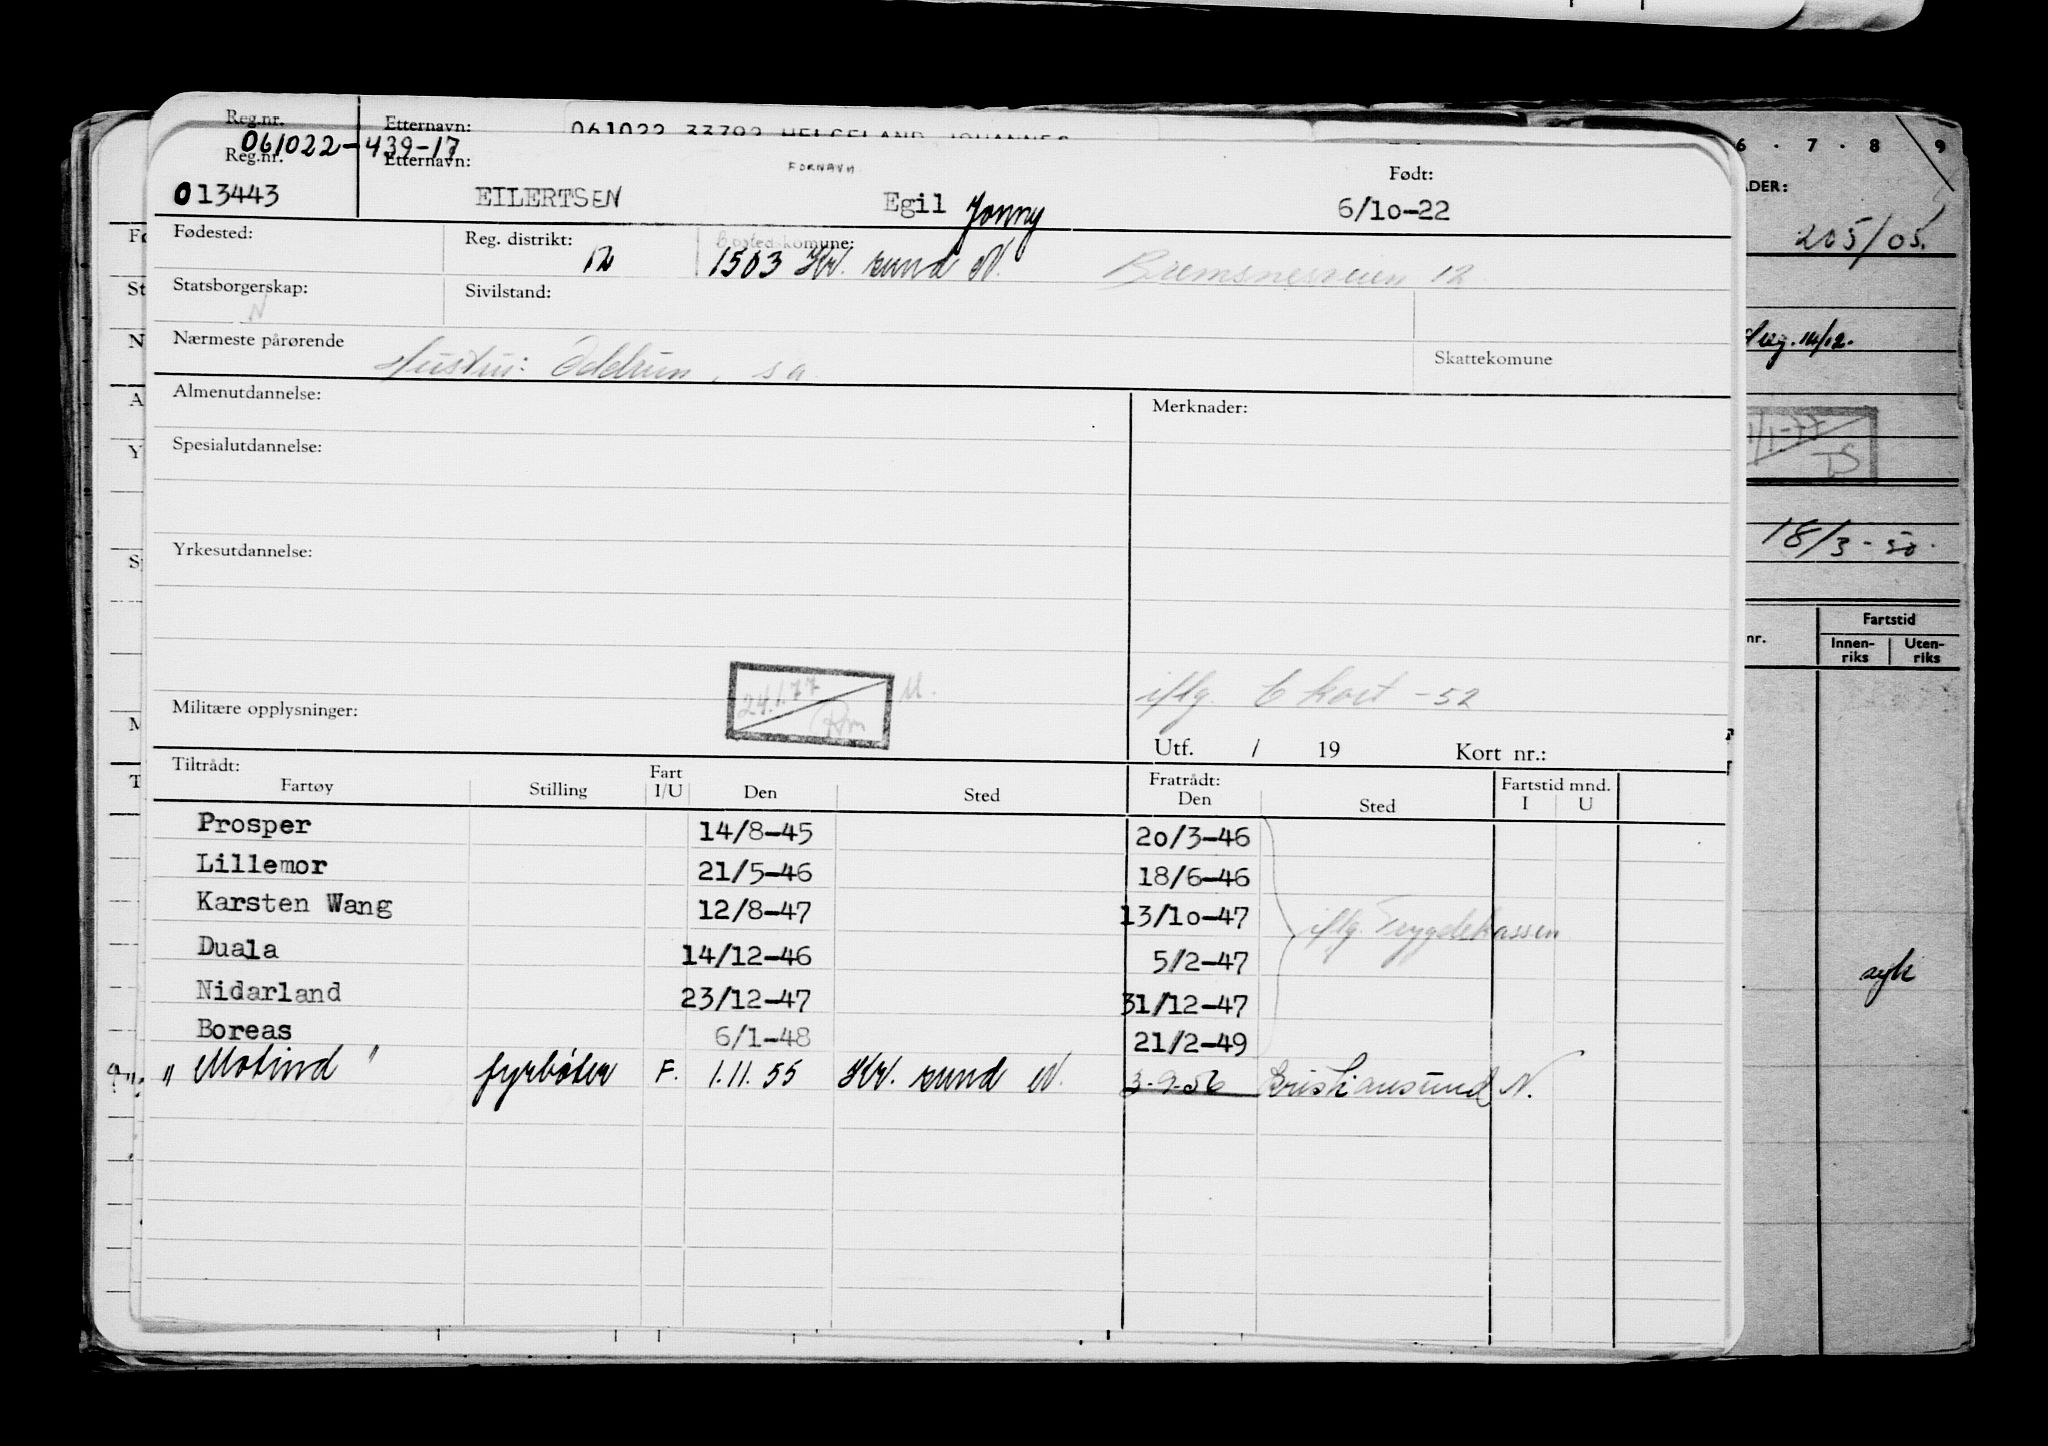 Reg.nr. Etternavn: 061022 33792 HELGELAND JOHANNES
061022-439-17
Reg.nr. Etternavn: FORNAVN Født:
013443 EILERTSEN Egil Jonny 6/10-22
Fødested: Reg. distrikt: 12 Bostedskomune: 1503 Kr. sund N. Bremsnesveien 12
Statsborgerskap: N Sivilstand:
Nærmeste pårørende Hustru: Oddrun, s a Skattekomune
Almenutdannelse: Merknader:
Spesialutdannelse:
Yrkesutdannelse:
24.1.77 M.
iflg. C kort -52
Militære opplysninger:
Utf. / 19 Kort nr.:
Tiltrådt: Fart Fratrådt: Fartstid mnd.
Fartøy Stilling I/U Den Sted Den Sted I U
Prosper 14/8-45 20/3-46
Lillemor 21/5-46 18/6-46
Karsten Wang 12/8-47 13/10-47
iflg. Trygdekassen
Duala 14/12-46 5/2-47
Nidarland 23/12-47 31/12-47
Boreas 6/1-48 21/2-49
"Motind" fyrbøter F. 1.11.55 Kr. sund N. 3-9-56 Kristiansund N.
6 . 7 . 8 9
ADER:
205/05.
14/12.
1/1-77
TS
18/3-50.
nr. Fartstid
Innen-riks Uten-riks
syk